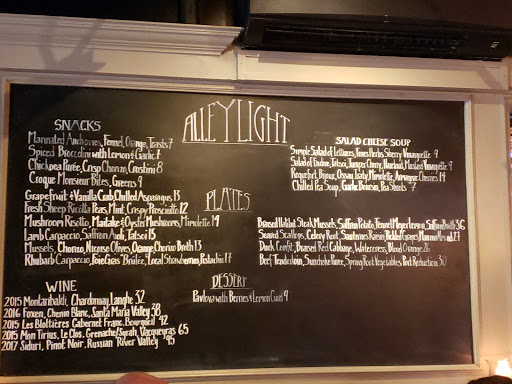 ALLEYLIGHT
SNACKS
Marinated Anchovies, Fennel, Orange, Toasts 7
Spiced Broccolini with Lemon & Garlic 7
Chickpea Purée, Crisp Chorizo, Crostini 8
Croque Monsieur Bites, Greens 9
Grapefruit & Vanilla Crab, Chilled Asparagus 13
Fresh Sheep Ricotta, Peas, Mint, Crispy Prosciutto 12
Mushroom Risotto, Maitake & Oyster Mushrooms, Mimolette 14
Lamb Carpaccio, Saffron Aioli, Fatost 13
Mussels, Chorizo, Nicoise Olives, Orange, Chorizo Broth 13
Rhubarb Carpaccio, Foie Gras Brulée, Local Strawberries, Pistachio 17
WINE
2015 Montaribaldi, Chardonnay, Langhe 32
2016 Foxen, Chenin Blanc, Santa Maria Valley 38
2015 Les Blottières Cabernet Franc, Bourgueil 42
2015 Mon Tirius, Le Clos, Grenache/Syrah, Vacqueyras 65
2017 Siduri, Pinot Noir, Russian River Valley 45
PLATES
DESSERT
Pavlova with Berries & Lemon Curd 9
SALAD CHEESE SOUP
Simple Salad of Lettuces, Fines Herbs, Sherry Vinaigrette 9
Salad of Endive, Tatsoi, Juniper Cherry, Hazelnut, Mustard Vinaigrette 9
Roquefort, Bijoux, Ossau Iraty, Mimolette, Auvergne Cherries 14
Chilled Pea Soup, Garlic Boursin, Pea Shoots 7
Braised Halibut Steak, Mussels, Saffron Potato, Fennel, Meyer Lemon, Saffron Broth 36
Seared Scallops, Celery Root, Sauternes Raisin, Pickled Grapes, Marcona Almond 29
Duck Confit, Braised Red Cabbage, Watercress, Blood Orange 28
Beef Tenderloin, Sunchoke Purée, Spring Root Vegetables, Port Reduction 30